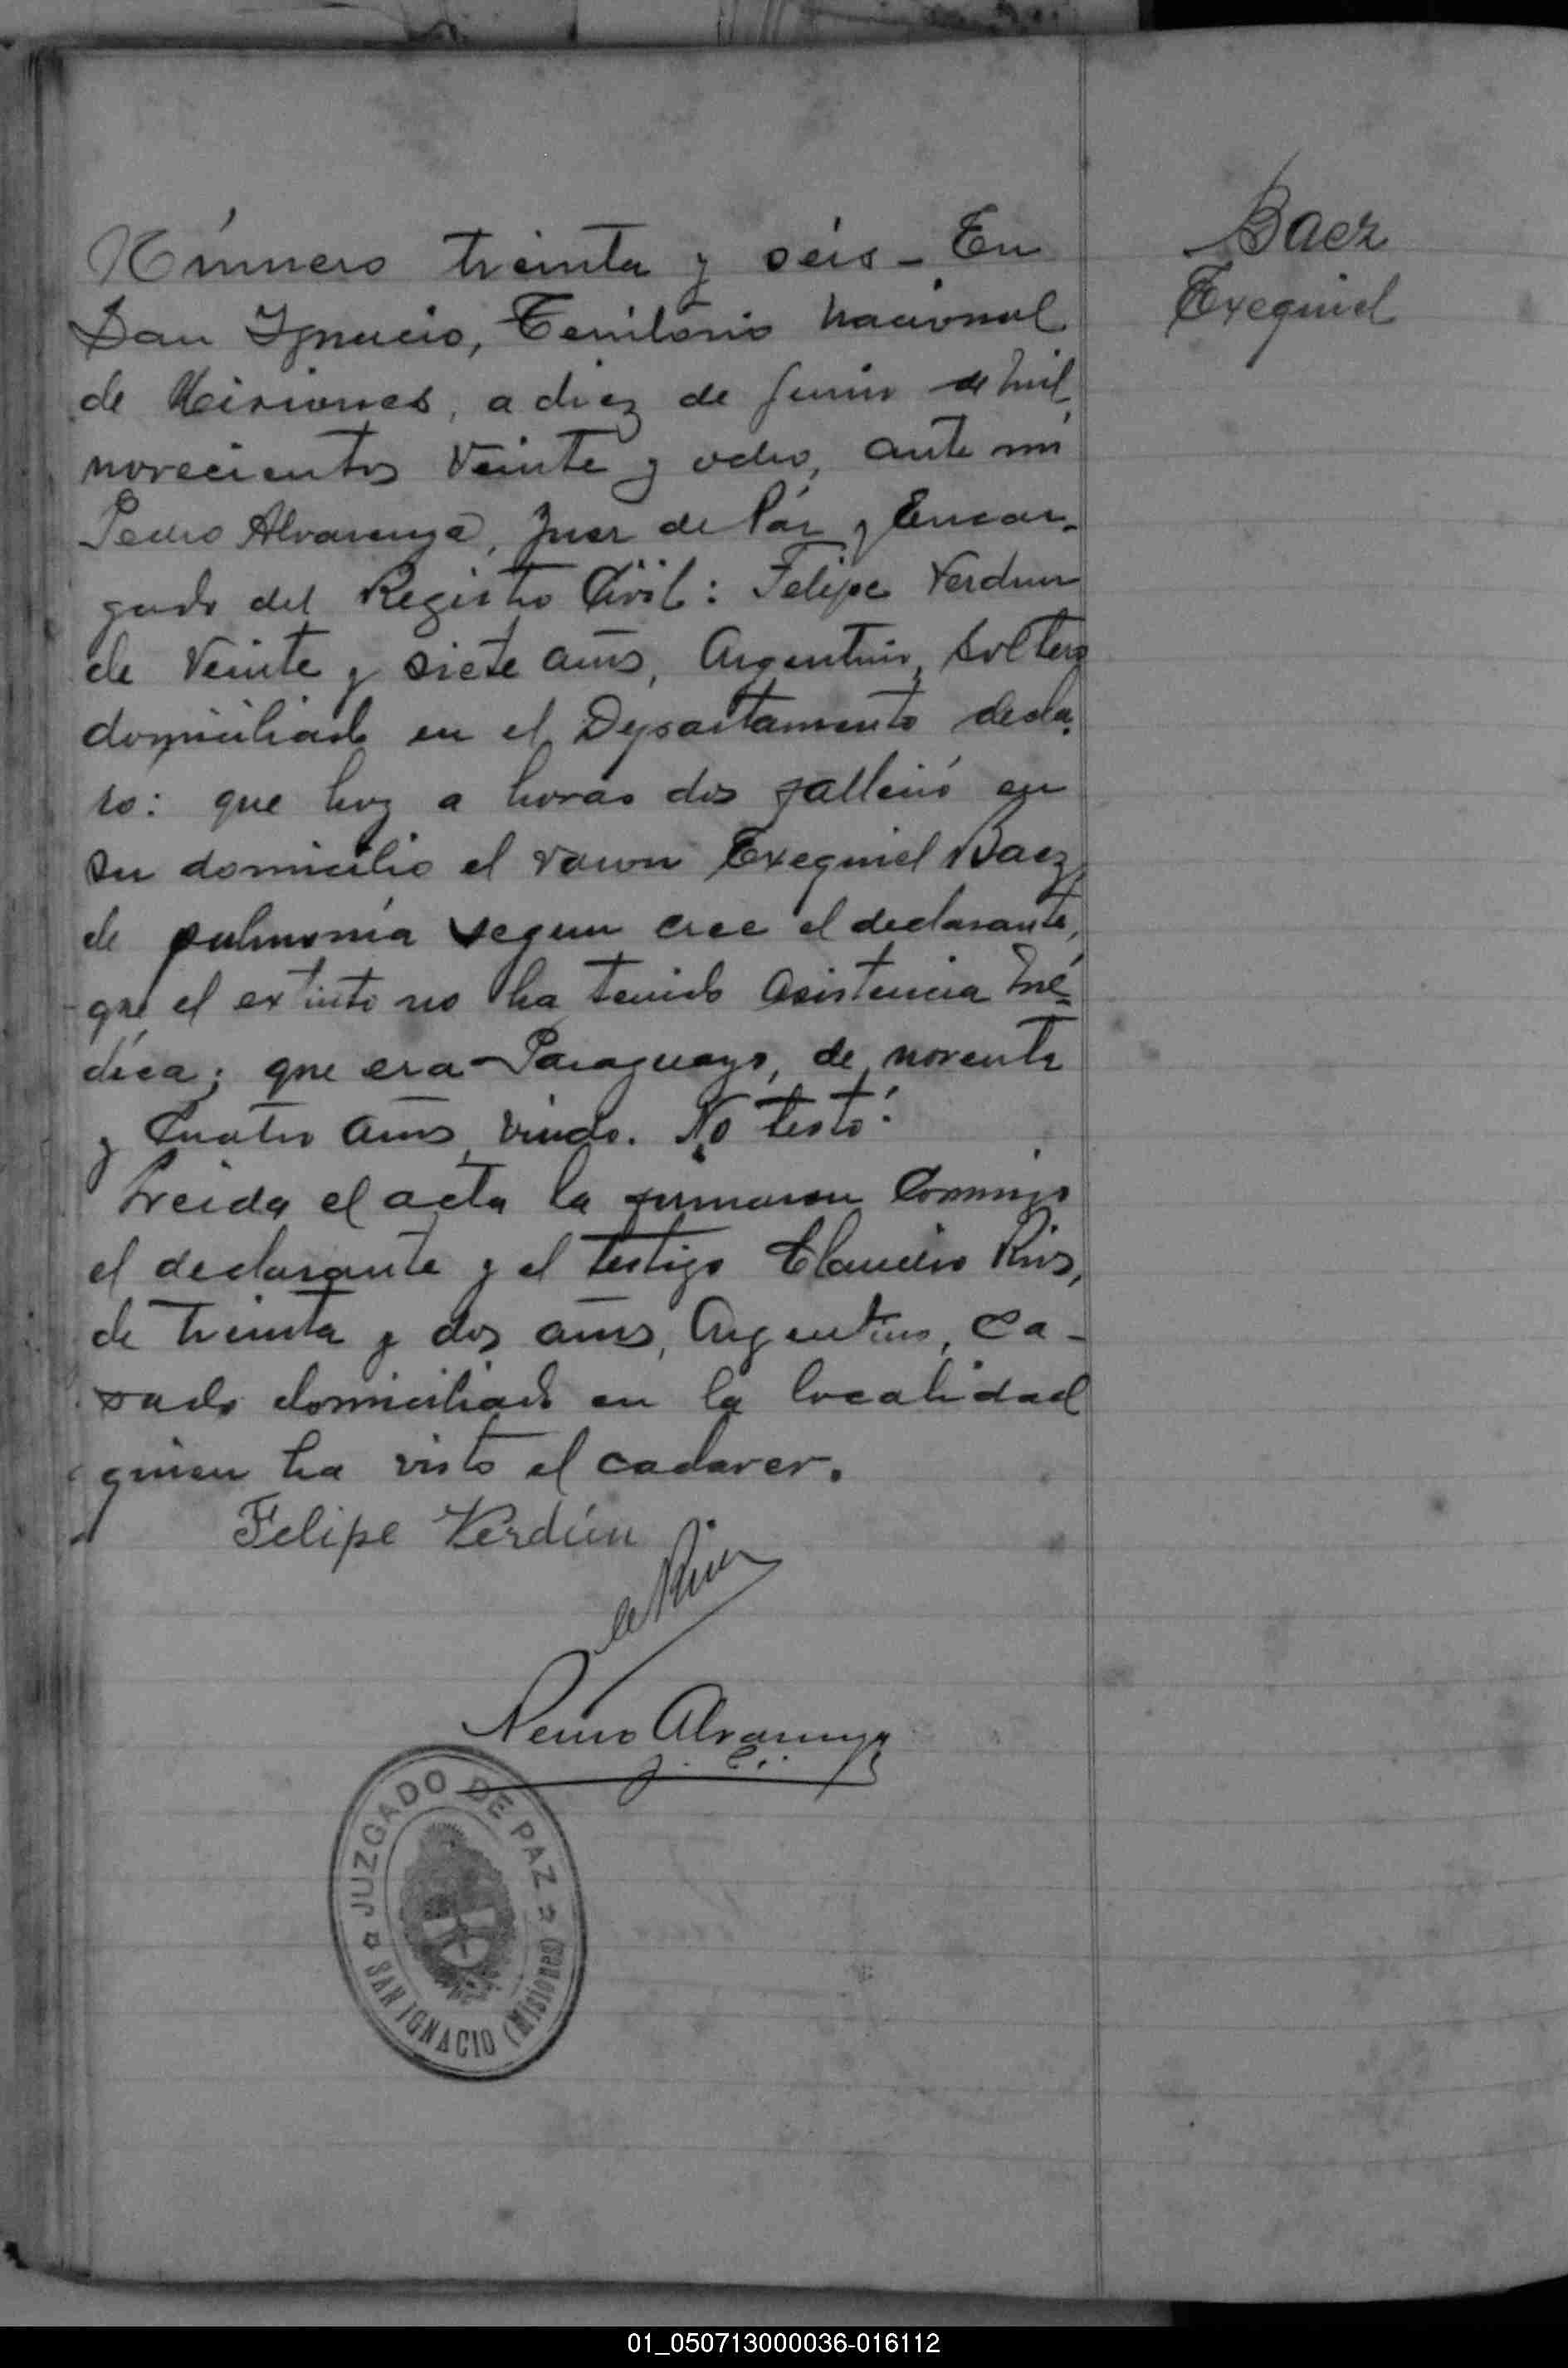 Baez
Exequiel
Número treinta y séis - En
San Ignacio, Territorio nacional
de Misiones, a diez de Junio de mil
novecientos veinte y ocho, ante mi
Pedro Alvarenga, Juez de Páz y Encar-
gado del Registro Civil: Felipe Verdun
de veinte y siete años, Argentino, soltero
domiciliado en el Departamento decla-
ro: que hoy a horas dos falleció en
su domicilio el varon Exequiel Baez,
de pulmonía segun cree el declarante,
que el extinto no ha tenido asistencia mé-
dica; que era Paraguayo, de noventa
y cuatro años, viudo. No testó.
Leida el acta la firmaron conmigo
el declarante y el testigo Claudio Rios,
de treinta y dos años, Argentino, ca-
sado domiciliado en la localidad
quien ha visto el cadaver.
Felipe Verdún
Pedro Alvarenga
JUZGADO DE PAZ
SAN IGNACIO (Misiones)
01_050713000036-016112